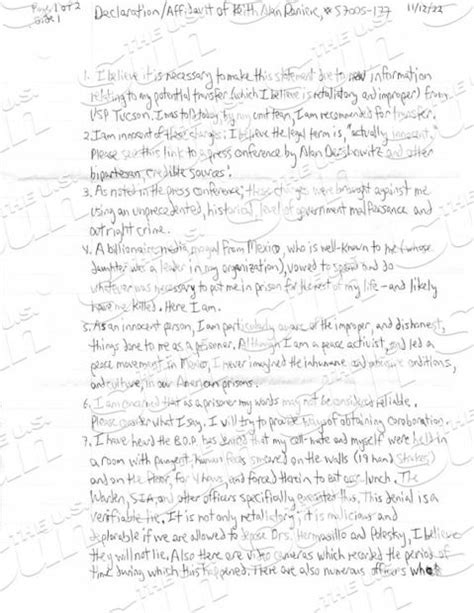 Page 1 of 2 Declaration/Affidavit of Keith Alan Raniere, # 57005-177 11/12/22
Side 1
1. I believe it is necessary to make this statement due to new information
relating to my potential transfer (which I believe is retaliatory and improper) from
USP Tucson. I was told today, by my unit team, I am recommended for transfer.
2. I am innocent of these charges: I believe the legal term is, "actually innocent."
Please see this link to a press conference by Alan Dershowitz and other
bipartesan, credible sources:
3. As noted in the press conference, these charges were brought against me
using an unprecedented, historical, level of government malfeasance and
outright crime.
4. A billionaire, media mogul from Mexico, who is well-known to me (whose
daughter was a leader in my organization), vowed to spend and do
whatever was necessary to put me in prison for the rest of my life - and likely
have me killed. Here I am.
5. As an innocent person, I am particularly aware of the improper, and dishonest,
things done to me as a prisoner. Although I am a peace activist, and led a
peace movement in Mexico, I never imagined the inhumane and abusive conditions,
and culture, in our American prisons.
6. I am concerned that as a prisoner my words may not be considered reliable.
Please consider what I say. I will try to provide ways of obtaining coroboration.
7. I have heard the B.O.P. has denied that my cell-mate and myself were held in
a room with pungent, human feces smeared on the walls (19 hand strokes)
and on the floor, for 4 hours, and forced therein to eat our lunch. The
Warden, SIA, and other officers specifically executed this. This denial is a
verifiable lie. It is not only retaliatory; it is malicious and
deplorable if we are allowed to depose Drs. Hermosillo and Pelesky, I believe
they will not lie. Also there are video cameras which recorded the period of
time during which this happened. There are also numerous officers who
THE U.S. Sun